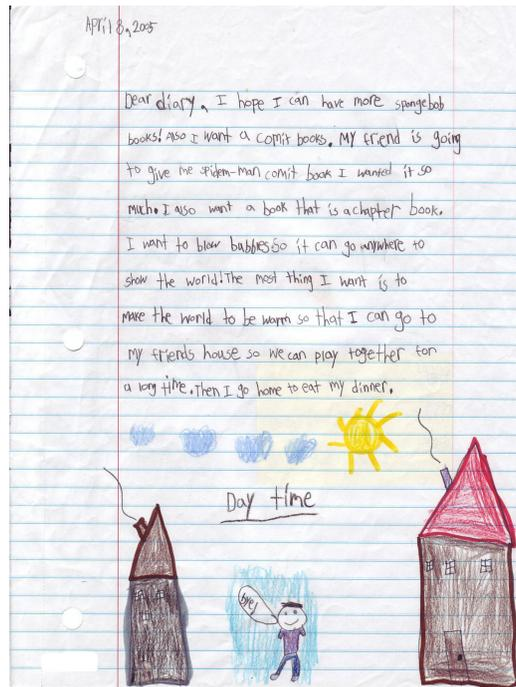 April 8, 2005
Dear diary, I hope I can have more spongebob
books! Also I want a comit books. My friend is going
to give me spidem-man comit book I wanted it so
much. I also want a book that is a chapter book.
I want to blow bubbles so it can go anywhere to
show the world! The most thing I want is to
make the world to be warm so that I can go to
my friends house so we can play together for
a long time. Then I go home to eat my dinner.
Day time
bye!